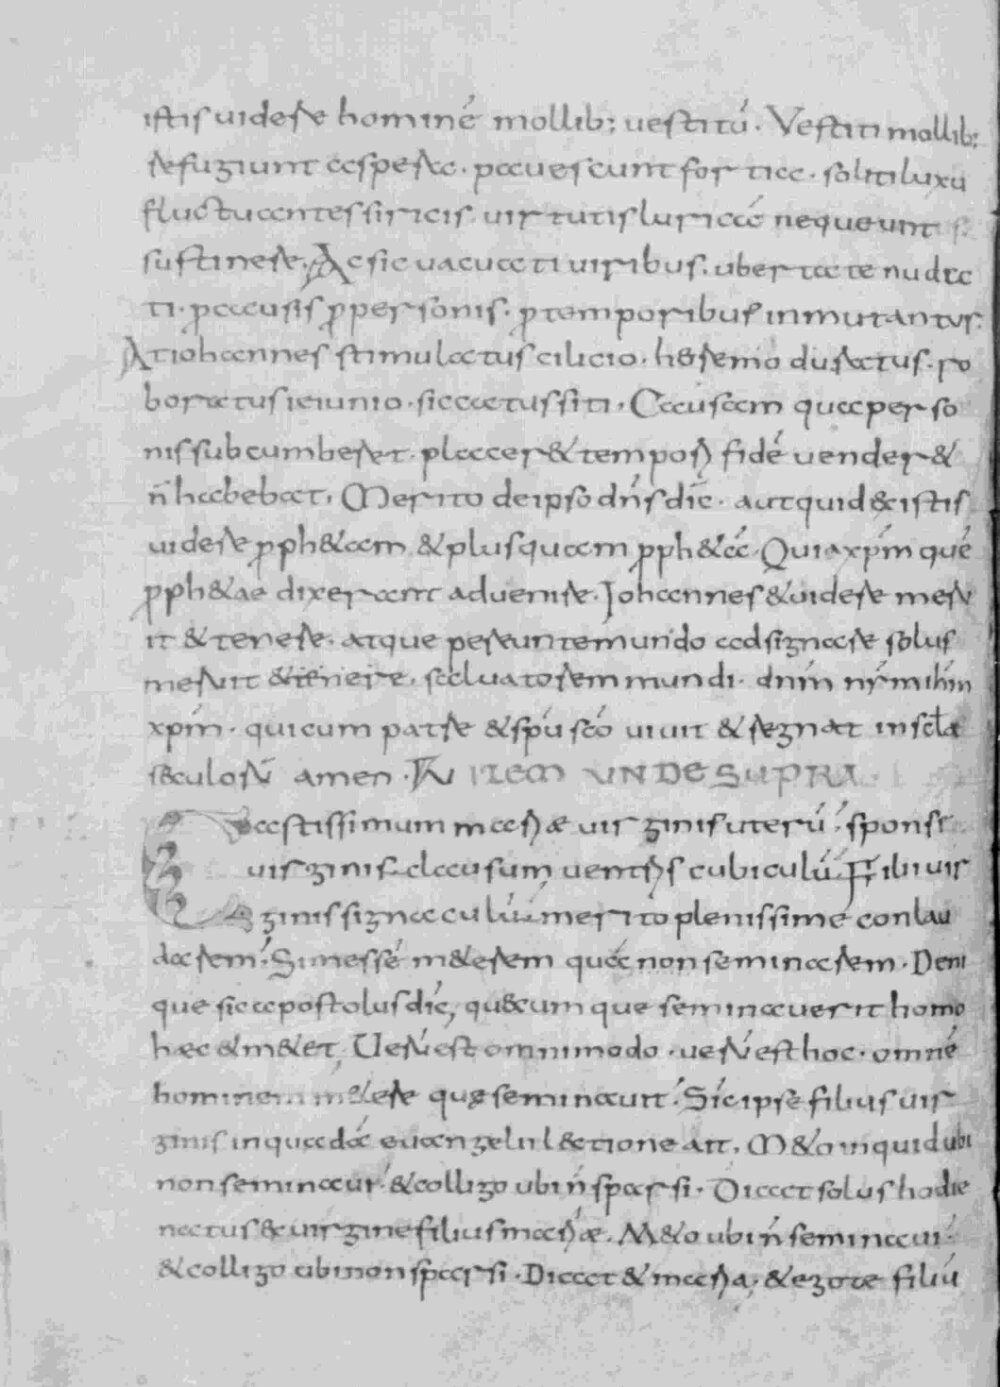 istis uidere hominē mollib; uestitū. Vestiti mollib;
refugiunt aspera. pauescunt fortia. soliti luxu
fluctuantes siricis. uirtutis luricā nequeunt
sustinere. Ac sic uacuati uiribus. ubertate nudra
ti. p causis p personis. p temporibus inmutantur.
At iohannes stimulatus cilicio. heremo duratus. ro
boratus ieiunio. siccatus siti. Causam quae perso
nis subcumberet. placer& tempoꝝ fidē uender&
n̄ habebat. Merito de ipso dn̄s dic̄. aut quid existis
uidere pph&am & plus quam pph&ā Quia xp̄m quē
pph&ae dixerant aduenire. Johannes & uidere meru
it & tenere. atque pereunte mundo ad signare solus
meruit & tenere. saluatorem mundi. dnm̄ nr̄m ihm̄
xpm̄. qui cum patre & spū scō uiuit & regnat in scl̄a
sæculorū amen. ITEM UNDE SUPRA.
Castissimum maꝝæ uirginis uterū. sponsi
uirginis clausum uentꝝs cubiculū. Filii uir
ginis signaculū. merito plenissime conlau
darem. Si messē m&erem quā non seminarem. Deni
que sic apostolus dic̄, quæcumque seminauerit homo
haec & m&et. Uerū est omnimodo. uerū est hoc. omnē
hominem m&ere quę seminauit. Sic ipse filius uir
ginis in quadā euangelii lectione ait. M&o inquid ubi
non seminaui. & colligo ubi n̄ sparsi. Dicat solus hodie
natus ex uirgine filius maꝝæ. M&o ubi n̄ seminaui.
& colligo ubi non sparsi. Dicat & maꝝa. & ego te filiū